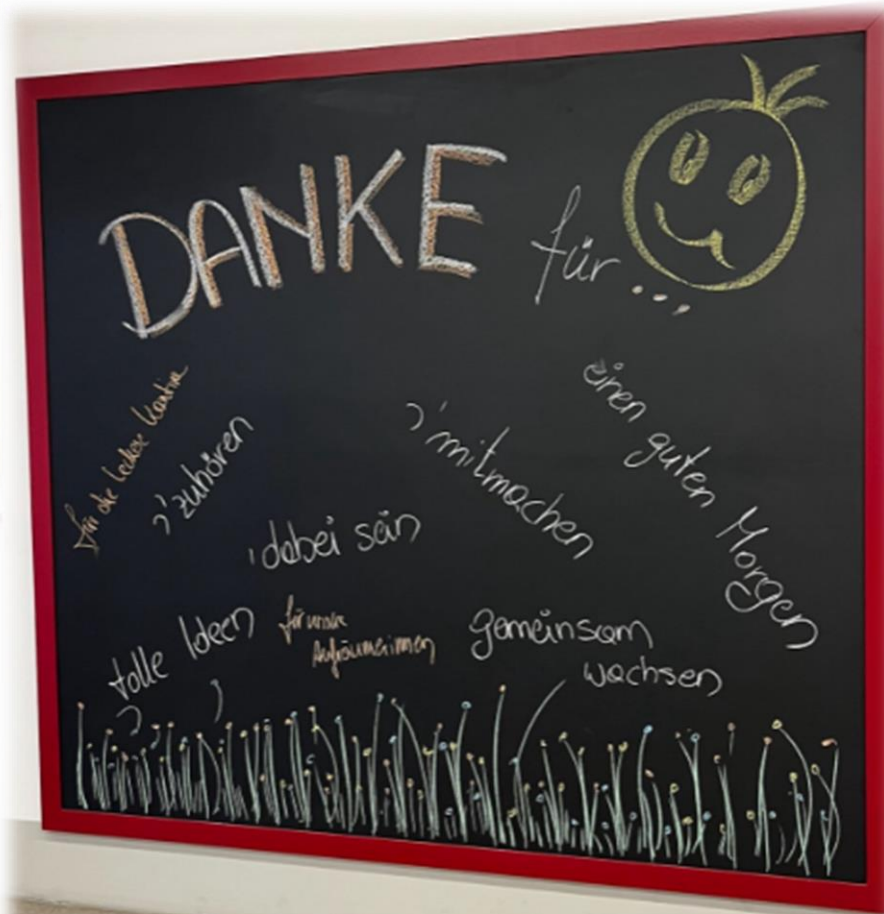 DANKE für...
für die leckere Kantine
'zuhören
'mitmachen
einen guten Morgen
'dabei sein
tolle Ideen
für unsere
Aufräumerinnen
gemeinsam
wachsen